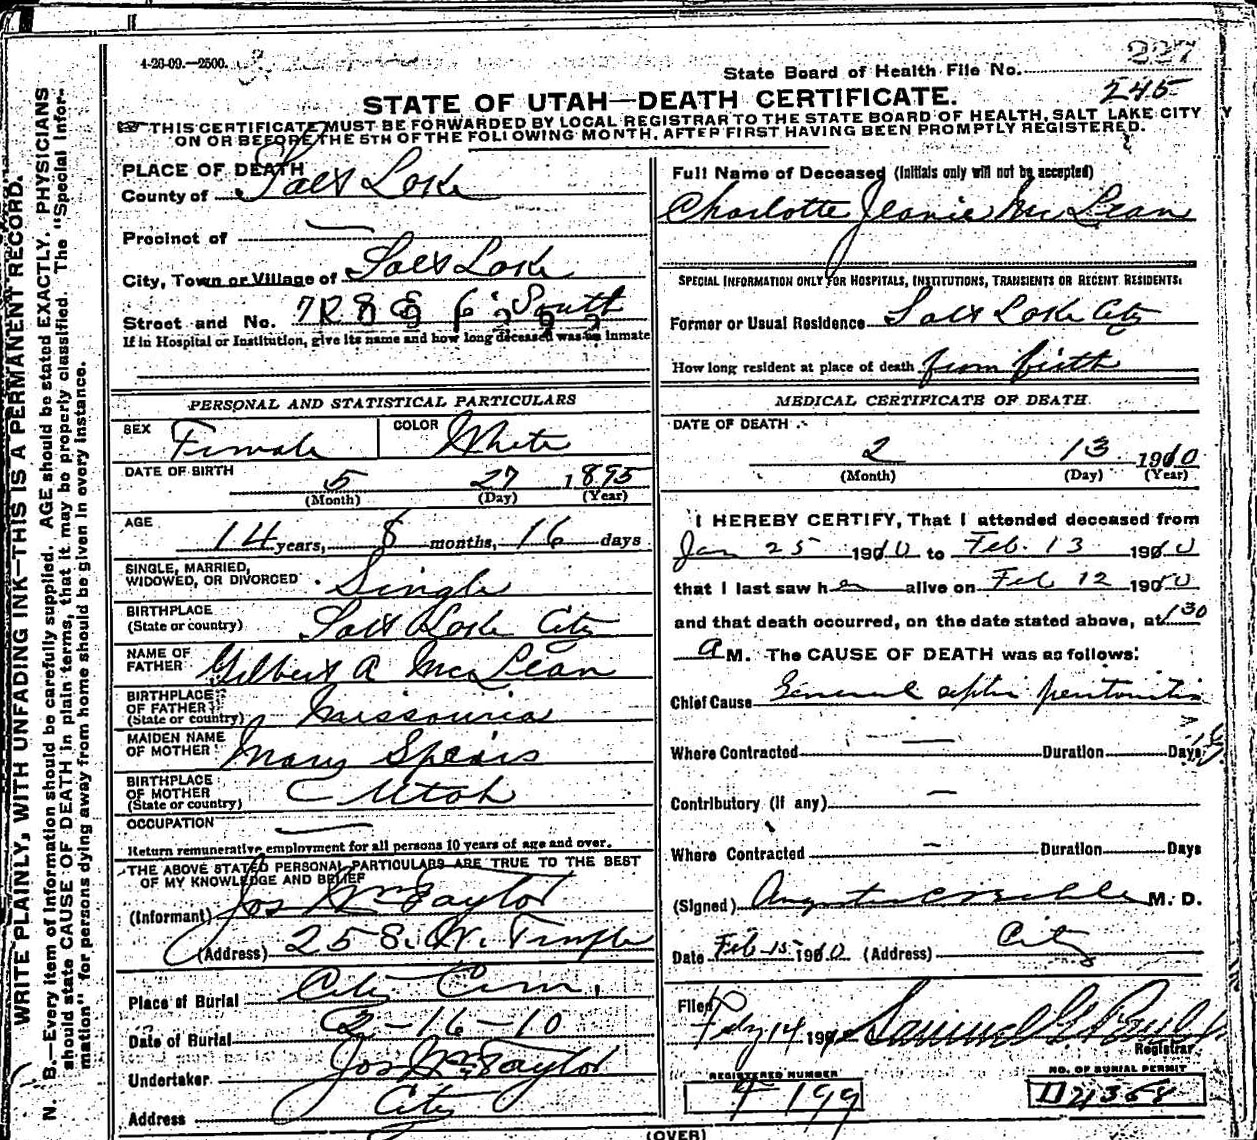 4-26-09.—2500.
227
State Board of Health File No.
245
STATE OF UTAH—DEATH CERTIFICATE.
THIS CERTIFICATE MUST BE FORWARDED BY LOCAL REGISTRAR TO THE STATE BOARD OF HEALTH, SALT LAKE CITY
ON OR BEFORE THE 5TH OF THE FOLLOWING MONTH, AFTER FIRST HAVING BEEN PROMPTLY REGISTERED.
WRITE PLAINLY, WITH UNFADING INK—THIS IS A PERMANENT RECORD.
N. B.—Every item of information should be carefully supplied. AGE should be stated EXACTLY. PHYSICIANS
should state CAUSE OF DEATH in plain terms, that it may be properly classified. The "Special Infor-
mation" for persons dying away from home should be given in every instance.
PLACE OF DEATH
County of Salt Lake
Precinct of —
City, Town or Village of Salt Lake
Street and No. South
If in Hospital or Institution, give its name and how long deceased was inmate
PERSONAL AND STATISTICAL PARTICULARS
SEX Female COLOR White
DATE OF BIRTH 5 27 1895
(Month) (Day) (Year)
AGE
14 years, 8 months, 16 days
SINGLE, MARRIED,
WIDOWED, OR DIVORCED Single
BIRTHPLACE
(State or country) Salt Lake City
NAME OF
FATHER Gilbert A McLean
BIRTHPLACE
OF FATHER
(State or country) Missouria
MAIDEN NAME
OF MOTHER Mary Spears
BIRTHPLACE
OF MOTHER
(State or country) Utah
OCCUPATION —
Return remunerative employment for all persons 10 years of age and over.
THE ABOVE STATED PERSONAL PARTICULARS ARE TRUE TO THE BEST
OF MY KNOWLEDGE AND BELIEF
(Informant) Jos Wm Taylor
(Address) 25 S. W. Temple
Place of Burial City Cem.
Date of Burial 2-16-10
Undertaker Jos Wm Taylor
Address City
Full Name of Deceased (Initials only will not be accepted)
Charlotte Jeanie McLean
SPECIAL INFORMATION ONLY FOR HOSPITALS, INSTITUTIONS, TRANSIENTS OR RECENT RESIDENTS:
Former or Usual Residence Salt Lake City
How long resident at place of death from birth
MEDICAL CERTIFICATE OF DEATH
DATE OF DEATH
2 13 1910
(Month) (Day) (Year)
I HEREBY CERTIFY, That I attended deceased from
Jan 25 1910 to Feb. 13 1910
that I last saw her alive on Feb 12 1910
and that death occurred, on the date stated above, at 1 30
A M. The CAUSE OF DEATH was as follows:
Chief Cause General septic peritonitis
Where Contracted — Duration Days
Contributory (if any) —
Where Contracted — Duration Days
(Signed) M. D.
Date Feb 15 1910 (Address) City
Filed
Feby 14 190 Samuel G Paul
Registrar
REGISTERED NUMBER
F 199
NO. OF BURIAL PERMIT
D 2368
(OVER)